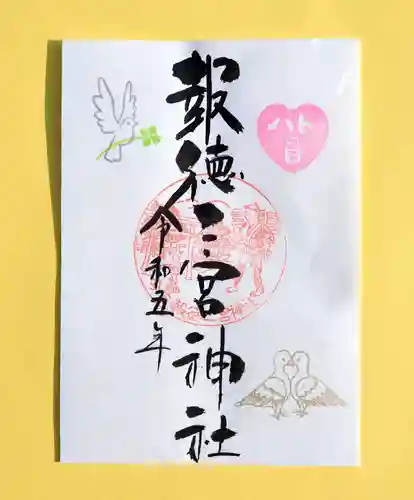 報徳二宮神社
令和五年
ハト
日